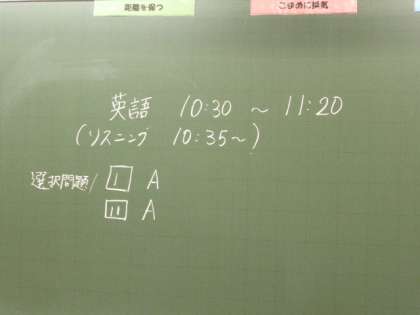 距離を保つ
こまめに換気
英語 10:30 ~ 11:20
(リスニング 10:35~)
選択問題/ I A
III A